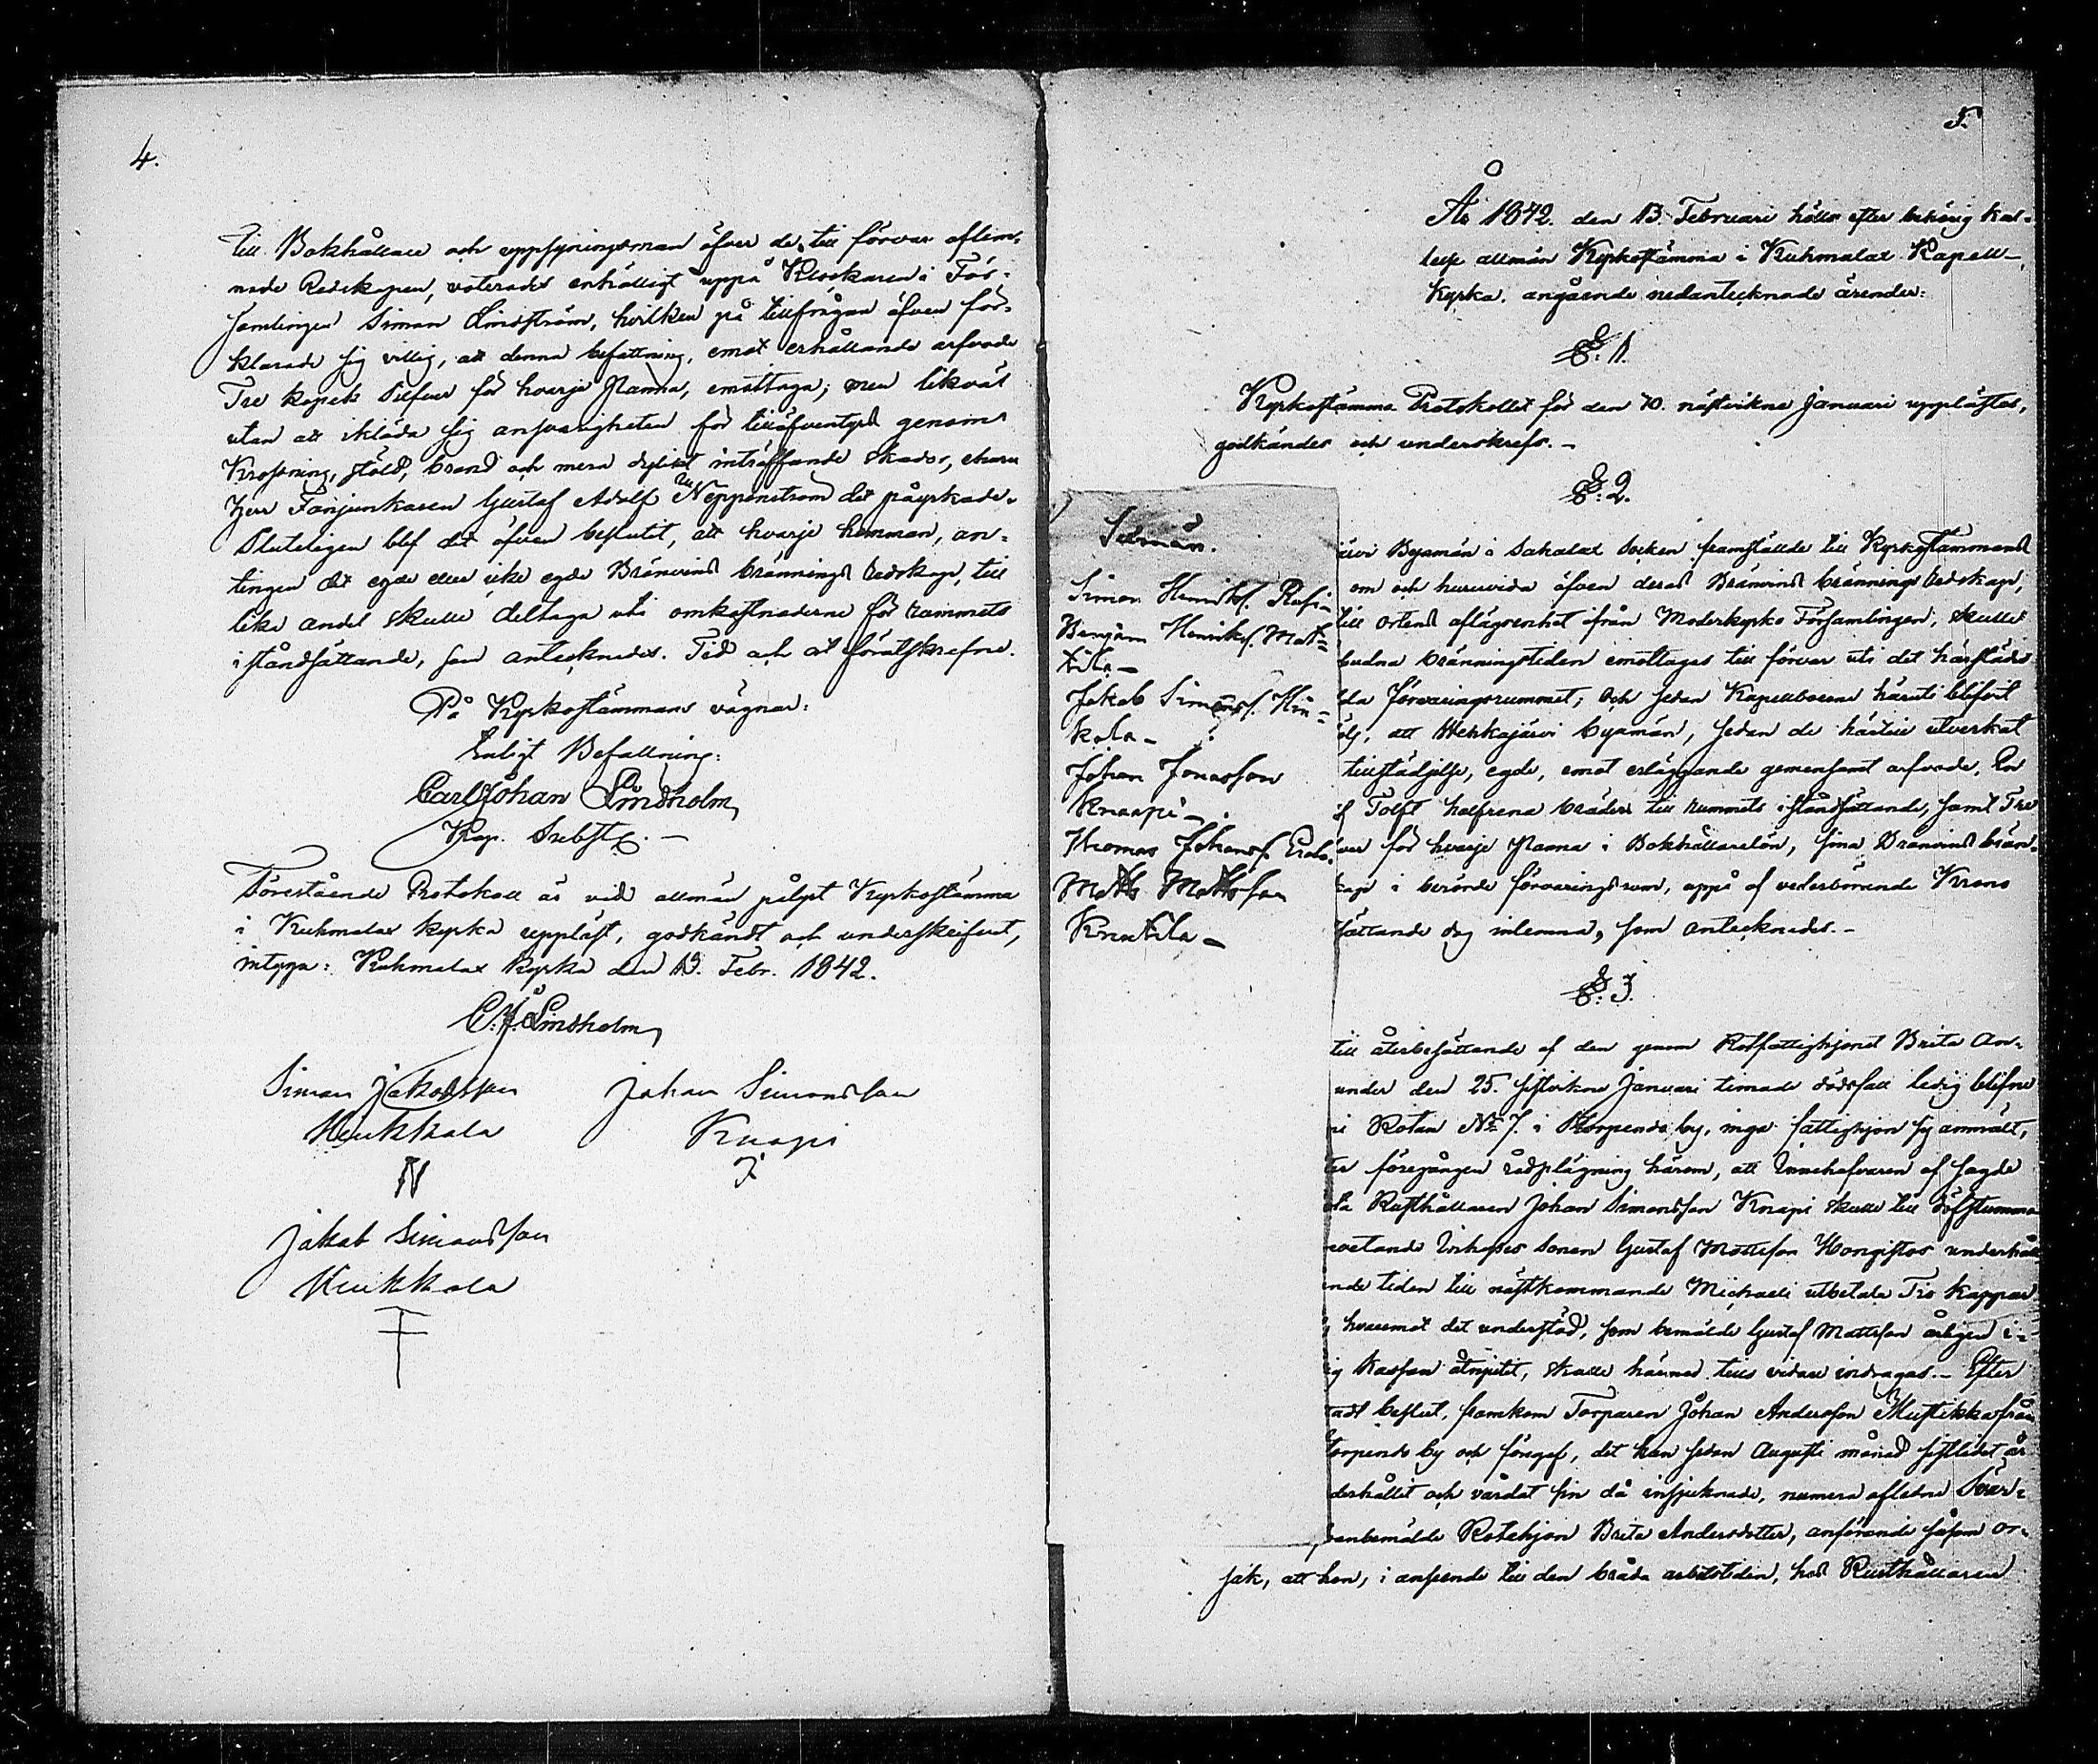 4.
till Bokhållare och uppsyningsman öfver de till förvar aflem-
nade Redskapen, voterades enhälligt uppå Klockaren i För-
samlingen Simon Lindström, hvilken på tillfrågan äfven för-
klarade sig villig, att denna befattning, emot erhållande arfvode
Tre kopek Silfver för hvarje Panna, emottaga; men likväl
utan att ikläda sig ansvarigheten för tilläfventyrs genom
Krossning, stöld, brand och mera dylikt inträffande skador, ehuru
Herr Fanjunkaren Gustaf Adolf Neppenstrom det påyrkade.
Sluteligen blef det äfven beslutit, att hvarje hemman, an-
tingen det egde eller icke egde Bränvins brännings redskap, till
lika andel skulle deltaga uti omkostnaderne för rummets
iståndsättande, som antecknades. Tid och ort förutskrefne.
På Kyrkostämmans vägnar:
Enligt Befallning:
Carl Johan Lindholm
Kap.
Förestående Protokoll är vid allmän pålyst Kyrkostämma
i Kuhmalax kyrka uppläst, godkändt och underskrifvit,
intyga: Kuhmalax Kyrka den 13. Febr. 1842.
C. J. Lindholm
Simon Jakobsson Johan Simonsson
Heikkala Knapi
Jakob Simonsson
Heikkala
5.
År 1842. den 13. Februari hölls efter behörig kal-
lelse allmän Kyrkostämma i Kuhmalax Kapell-
kyrka, angående nedantecknade ärender:
§. 1.
Kyrkostämma Protokollet för den 10. nästvikne Januari upplästes,
godkändes och underskrefs. -
§. 2.
järvi Byamän i Sahalax Socken framställde till Kyrkostämmans
om och huruvida äfven deras Bränvins brännings redskap,
till ortens aflägsenhet ifrån Moderkyrko Församlingen, skulle
budna bränningstiden emottagas till förvar uti det härstädes
da förvaringsrummet; och sedan Kapellboerne häruti blifvit
att Wehkajärvi byamän, sedan de härtill utverkat
tillstädjelse, egde, emot erläggande gemensamt arfvode, En
Tolft halfrena bräder till rummets iståndsättande, samt Tre
ver för hvarje Panna i Bokhållarelön, sina Bränvins brän-
kap i berörde förvaringsrum, uppå af vederbörande Krono
sättande dag inlemna, som antecknades. -
Sexmän.
Simon Henriks. Rusi-
Benjam Henriks. Mat-
tila -
Jakob Simons. Hin-
kala -
Johan Jonasson
Knaapi -
Thomas Johans. Erola
Matts Mattsson
Knuttila -
§. 3.
till återbesättande af den genom Rotfattighjonet Brita An-
under den 25. sistvikne Januari timade dödsfall ledig blifne
Rotan No 7. i Pohjois by, inga fattighjon sig anmält,
ter föregången rådplägning härom, att Innehafvaren af sagde
ta Rusthållaren Johan Simonsson Knapi skulle till döfstumma
varande Inhyses sonen Gustaf Mattsson Hongistos underhåll
nde tiden till nästkommande Michaeli utbetala Tio kappar
hvaremot det understöd, som bemälde Gustaf Mattsson årligen i
ig kassan åtnjutit, skulle härmed tills vidare indragas. - Efter
tadt beslut, framkom Torparen Johan Andersson Mustikka från
by och föregaf, det han sedan Augusti månad sistledet år
derhållit och vårdat sin då insjuknade, numera aflidne Svär-
vanbemälde Rotehjon Brita Andersdotter, anförande såsom or-
sak, att hon, i anseende till den bråda arbetstiden, hos Rusthållaren